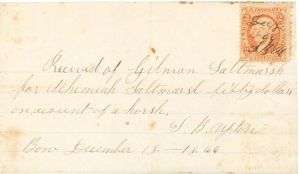 Recived of Gilman Saltmarsh
for Nehemiah Saltmarsh fifty dollars
on account of a horse,
S. B. Upton
Bow December 15 - 1866